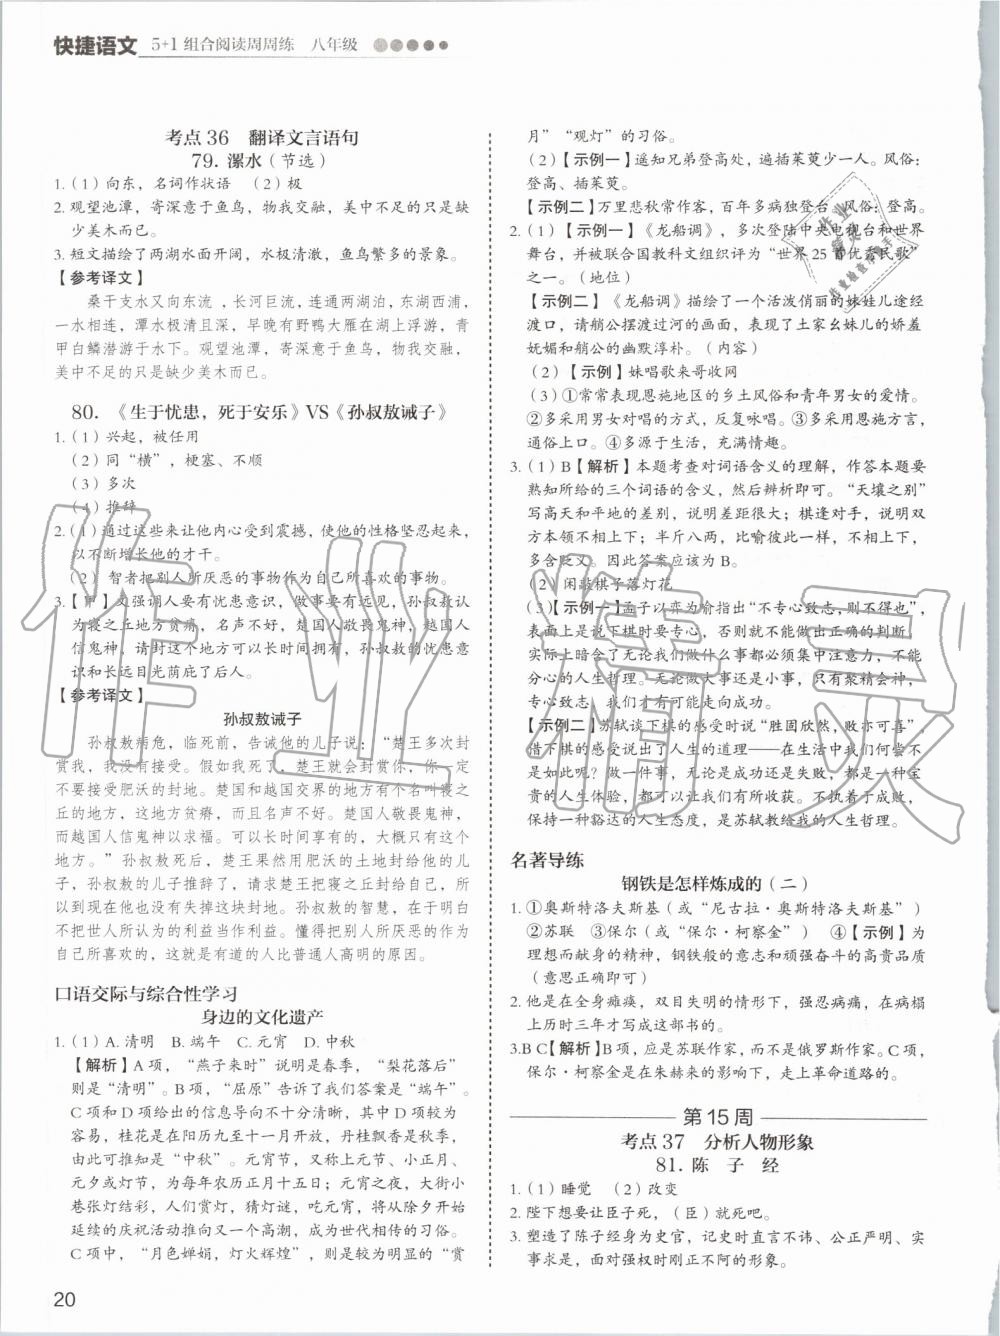 快捷语文 5+1 组合阅读周周练 八年级
考点 36 翻译文言语句
79. 漯水（节选）
1.（1）向东，名词作状语 （2）极
2. 观望池潭，寄深意于鱼鸟，物我交融，美中不足的只是缺
少美木而已。
3. 短文描绘了两湖水面开阔、水极清澈、鱼鸟繁多的景象。
【参考译文】
桑干支水又向东流，长河巨流，连通两湖泊，东湖西浦，
一水相连，潭水极清且深，早晚有野鸭大雁在湖上浮游，青
甲白鳞潜游于水下。观望池潭，寄深意于鱼鸟，物我交融，
美中不足的只是缺少美木而已。
80. 《生于忧患，死于安乐》VS《孙叔敖诫子》
1.（1）兴起，被任用
（2）同“横”，梗塞、不顺
（3）多次
（4）推辞
2.（1）通过这些来让他内心受到震撼，使他的性格坚忍起来，
以不断增长他的才干。
（2） 智者把别人所厌恶的事物作为自己所喜欢的事物。
3.【甲】文强调人要有忧患意识，做事要有远见，孙叔敖认
为寝之丘地方贫瘠，名声不好，楚国人敬畏鬼神，越国人
信鬼神，请封这个地方可以长时间拥有，孙叔敖的忧患意
识和长远目光荫庇了后人。
【参考译文】
孙叔敖诫子
孙叔敖病危，临死前，告诫他的儿子说：“楚王多次封
赏我，我没有接受。假如我死了，楚王就会封赏你，你一定
不要接受肥沃的封地。楚国和越国交界的地方有个名叫寝之
丘的地方，这地方贫瘠，而且名声不好。楚国人敬畏鬼神，
而越国人信鬼神以求福。可以长时间享有的，大概只有这个
地方。”孙叔敖死后，楚王果然用肥沃的土地封给他的儿
子，孙叔敖的儿子推辞了，请求楚王把寝之丘封给他，所以
他的后人也没有失掉这块封地。孙叔敖的智慧，在于于明白
不把世人所认为的利益当作利益。懂得把别人所厌恶的作为
自己所喜欢的，这就是有道之人比普通人高明的原因。
口语交际与综合性学习
身边的文化遗产
1.（1）A. 清明 B. 端午 C. 元宵 D. 中秋
【解析】A 项，“燕子来时”说明是春季，“梨花落后”
则是“清明”。B 项，“屈原”告诉了我们答案是“端午”。
C 项和 D 项给出的信息导向不十分清楚，其中 D 项较为
容易，桂花是在阳历九至十一月开放，丹桂飘香是秋季，
由此可推知是“中秋”。元宵节，又称上元节、小正月、
元夕或灯节，为每年农历正月十五日；元宵之夜，大街小
巷张灯结彩，人们赏灯，猜灯谜，吃元宵，将从春节开始
延续的庆祝活动推向又一个高潮，成为世代相传的习俗。
C 项中，“月色婵娟，灯火辉煌”，则是较为特殊的“赏
月”“观灯”的习俗。
（2）【示例一】遥知兄弟登高处，遍插茱萸少一人。风俗：
登高、插茱萸。
【示例二】万里悲秋常作客，百年多病独登台。风俗：登高。
2.（1）【示例一】《龙船调》，多次登陆中央电视台和世界
舞台，并被联合国教科文组织评为“世界 25 首优秀民歌”
之一。（地位）
【示例二】《龙船调》描绘了一个活泼俏丽的妹娃儿途经
渡口，请艄公摆渡过河的画面，表现了土家幺妹儿的娇羞
妩媚和艄公的幽默淳朴。（内容）
（2）【示例】妹唱歌来哥收网
（3）①常常表现恩施地区的乡土风俗和青年男女的爱情。
②多采用男女对唱的方式，反复咏唱。③多采用恩施方言，
通俗上口。④多源于生活，充满情趣。
3.（1）B【解析】本题考查对词语含义的理解，作答本题要
熟知所给的三个词语的含义，然后辨析即可。“天壤之别”
写高天和平地的差别，说明差距很大；棋逢对手，说明双
方本领不相上下；半斤八两，比喻彼此一样，不相上下，
多含贬义。因此答案应该为 B。
（2）闲敲棋子落灯花
（3）【示例一】孟子以弈为喻指出“不专心致志，则不得也”，
表面上是说下棋时要专心，否则就不能做出正确的判断，
实际上暗含了无论我们做什么事都必须集中注意力，不能
分心的人生哲理。无论做大事还是小事，只有聚精会神，
专心致志，我们才有可能走向成功。
【示例二】苏轼谈下棋的感受时说“胜固欣然，败亦可喜”，
借下棋的感受说出了人生的道理——在生活中我们何尝不
是如此呢？做一件事，无论是成功还是失败，都是一种宝
贵的人生体验，都可以让我们有所收获。不执着于成败，
保持一种豁达的人生态度，是苏轼教给我的人生哲理。
名著导练
钢铁是怎样炼成的（二）
1. ①奥斯特洛夫斯基（或“尼古拉·奥斯特洛夫斯基”）
②苏联 ③保尔（或“保尔·柯察金”） ④【示例】为
理想而献身的精神，钢铁般的意志和顽强奋斗的高贵品质
（意思正确即可）
2. 他是在全身瘫痪，双目失明的情形下，强忍病痛，在病榻
上历时三年才写成这部书的。
3.B C【解析】B 项，应是苏联作家，而不是俄罗斯作家。C 项，
保尔·柯察金是在朱赫来的影响下，走上革命道路的。
第 15 周
考点 37 分析人物形象
81. 陈 子 经
1.（1）睡觉 （2）改变
2. 陛下想要让臣子死，（臣）就死吧。
3. 塑造了陈子经身为史官，记史时直言不讳、公正严明、实
事求是，面对强权时刚正不阿的形象。
20
作业精灵